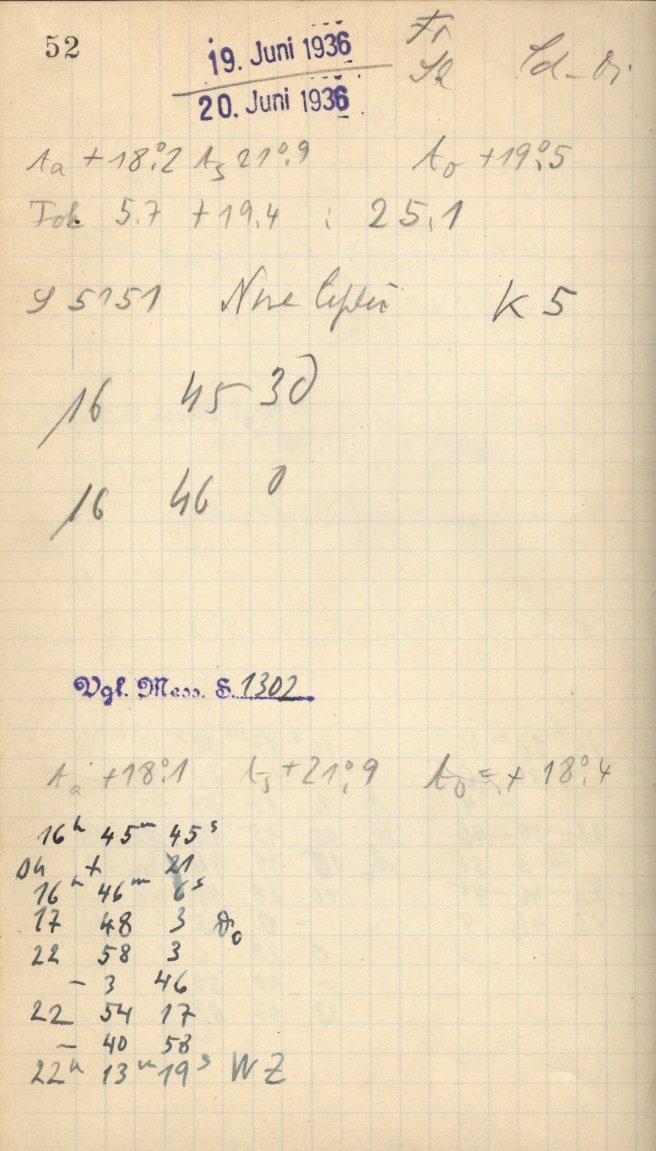 52
19. Juni 1936 Fr
20. Juni 1936 Sa
tₐ +18°.2 tₛ 21°.9 t₀ +19°.5
Fok. 5.7 +19.4 : 25.1
S 5151 K 5
16 45 30
16 46 0
Vgl. Mess. S. 1302
tₐ +18°.1 tₛ +21°.9 t₀ = + 18°.4
16ʰ 45ᵐ 45ˢ
+ 21
16ʰ 46ᵐ 6ˢ
17 48 3 ϑ₀
22 58 3
- 3 46
22 54 17
- 40 58
22ʰ 13ᵐ 19ˢ WZ